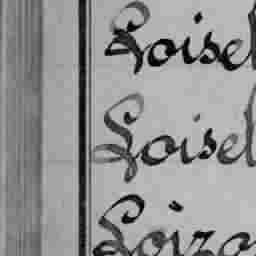 Loisel
Loisel
Loizo